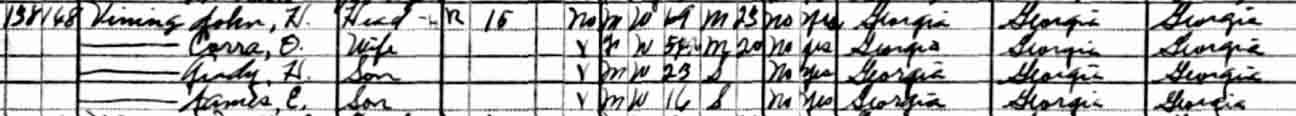 138 148 Vining John, H. Head R 15 No M W 69 M 23 No Yes Georgia Georgia Georgia
Corra, O. Wife V F W 58 M 20 No Yes Georgia Georgia Georgia
Andy, H. Son V M W 23 S No Yes Georgia Georgia Georgia
James, C. Son V M W 16 S No Yes Georgia Georgia Georgia